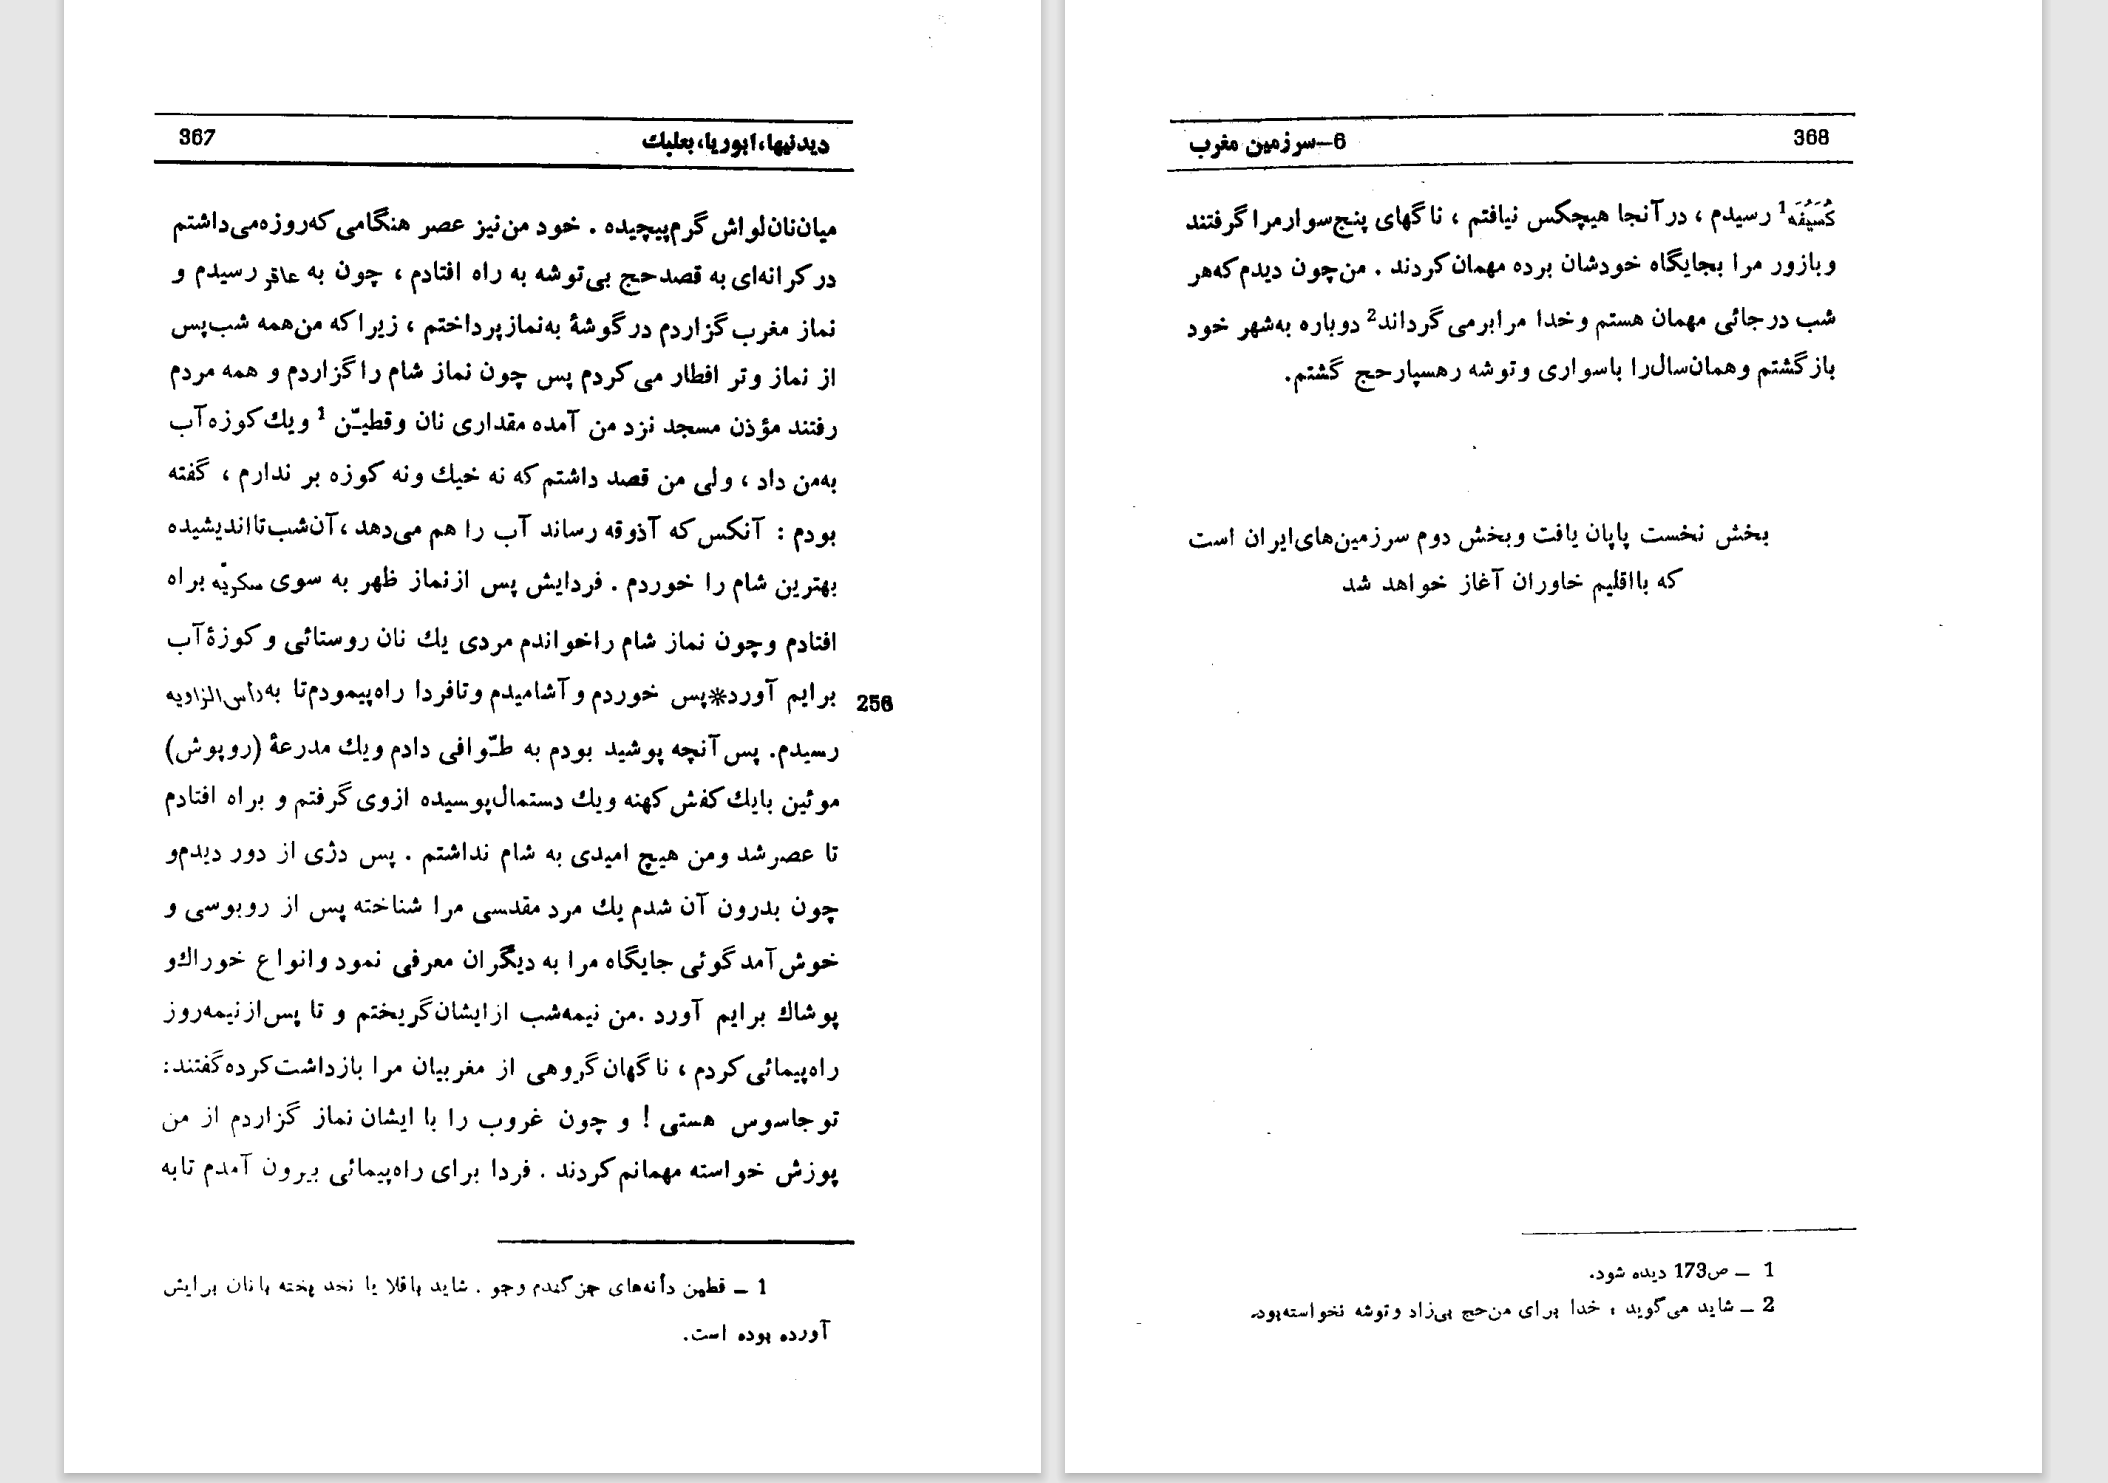 367
دیدنیها، ابوریا، بعلبك
میان نان لواش گرم پیچیده . خود من نیز عصر هنگامی که روزه می داشتم
در کرانه‌ای به قصد حج بی توشه به راه افتادم ، چون به عاقر رسیدم و
نماز مغرب گزاردم در گوشهٔ به نماز پرداختم ، زیرا که من همه شب پس
از نماز وتر افطار می کردم پس چون نماز شام را گزاردم و همه مردم
رفتند مؤذن مسجد نزد من آمده مقداری نان و قطیّن 1 ویك کوزه آب
به من داد ، ولی من قصد داشتم که نه خیك ونه کوزه بر ندارم ، گفته
بودم : آنکس که آذوقه رساند آب را هم می دهد ، آن شب تا اندیشیده
بهترین شام را خوردم . فردایش پس از نماز ظهر به سوی سکریّه براه
افتادم وچون نماز شام را خواندم مردی یك نان روستائی و کوزهٔ آب
برایم آورد*پس خوردم و آشامیدم و تا فردا راه پیمودم تا به راس الزاویه
256
رسیدم. پس آنچه پوشید بودم به طـّوافی دادم ویك مدرعهٔ (روپوش)
موئین با یك کفش کهنه ویك دستمال پوسیده از وی گرفتم و براه افتادم
تا عصر شد ومن هیچ امیدی به شام نداشتم . پس دژی از دور دیدم و
چون بدرون آن شدم یك مرد مقدسی مرا شناخته پس از روبوسی و
خوش آمد گوئی جایگاه مرا به دیگران معرفی نمود وانواع خوراك و
پوشاك برایم آورد .من نیمه شب از ایشان گریختم و تا پس از نیمه روز
راه پیمائی کردم ، ناگهان گروهی از مغربیان مرا بازداشت کرده گفتند:
تو جاسوس هستی ! و چون غروب را با ایشان نماز گزاردم از من
پوزش خواسته مهمانم کردند . فردا برای راه پیمائی بیرون آمدم تا به
1 ــ قطین دأنه‌های جز گندم وجو . شاید باقلا یا نخد پخته با نان برایش
آورده بوده است.
6ــ سرزمین مغرب
368
کُسَیفَه1 رسیدم ، در آنجا هیچکس نیافتم ، ناگهای پنج سوار مرا گرفتند
و بازور مرا بجایگاه خودشان برده مهمان کردند . من چون دیدم که هر
شب در جائی مهمان هستم و خدا مرا بر می گرداند2 دوباره به شهر خود
بازگشتم و همان سال را با سواری و توشه رهسپار حج گشتم.
بخش نخست پاپان یافت و بخش دوم سرزمین‌های ایران است
که با اقلیم خاوران آغاز خواهد شد
1 ــ ص173 دیده شود.
2 ــ شاید می گوید ، خدا برای من حج بی زاد و توشه نخواسته بود.